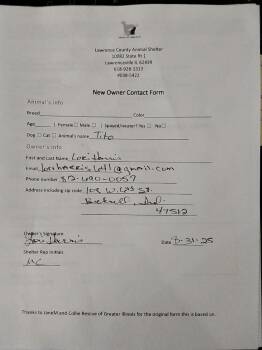 Lawrence County Animal Shelter
10992 State Rt 1
Lawrenceville IL 62439
618-928-3313
New Owner Contact Form
Animal's Info
Breed Color
Age | Female☐ Male ☐ | Spayed/neuter? Yes ☐ No☐
Dog ☐ Cat ☐ Animal's name Tito
Owner's Info
First and Last Name Lori Harris
Email
Phone number 812-890-0057
Address including zip code
Bicknell, Ind.
47512
Owner's Signature
Lori Harris Date 3-31-25
Shelter Rep Initials
Thanks to JaneM and Collie Rescue of Greater Illinois for the original form this is based on.